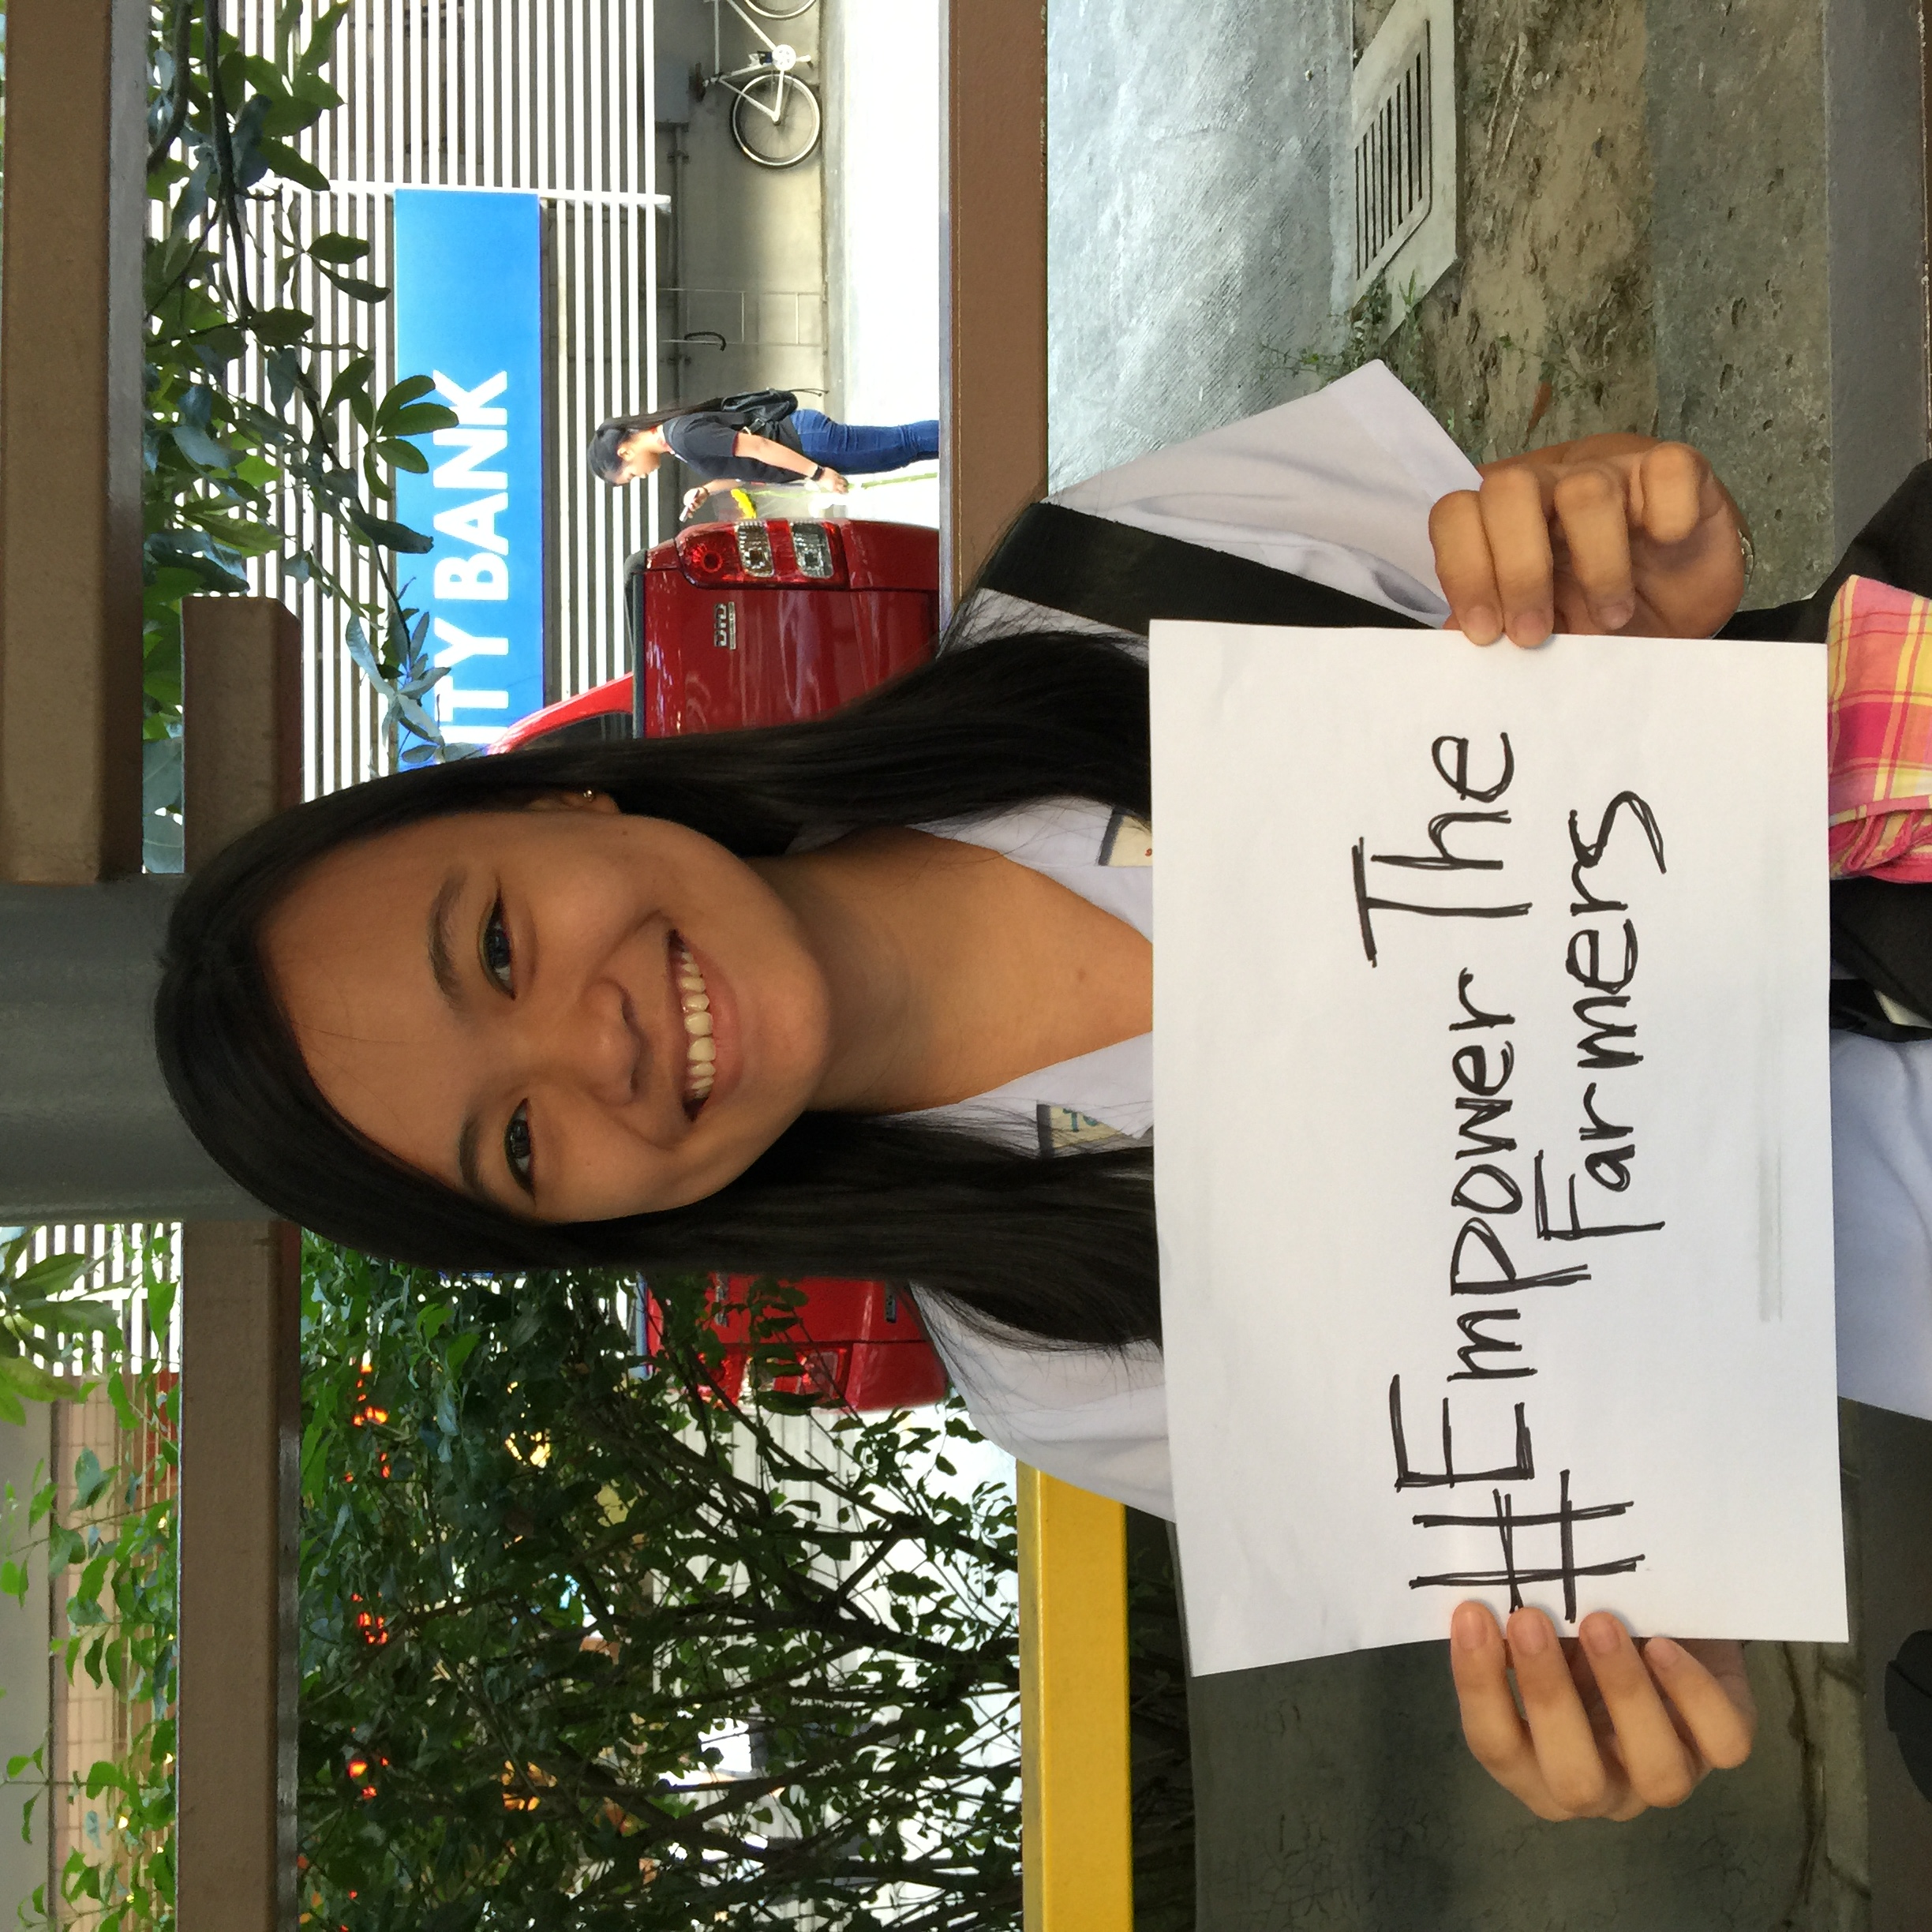 ITY BANK
DID
#Empower The
Farmers